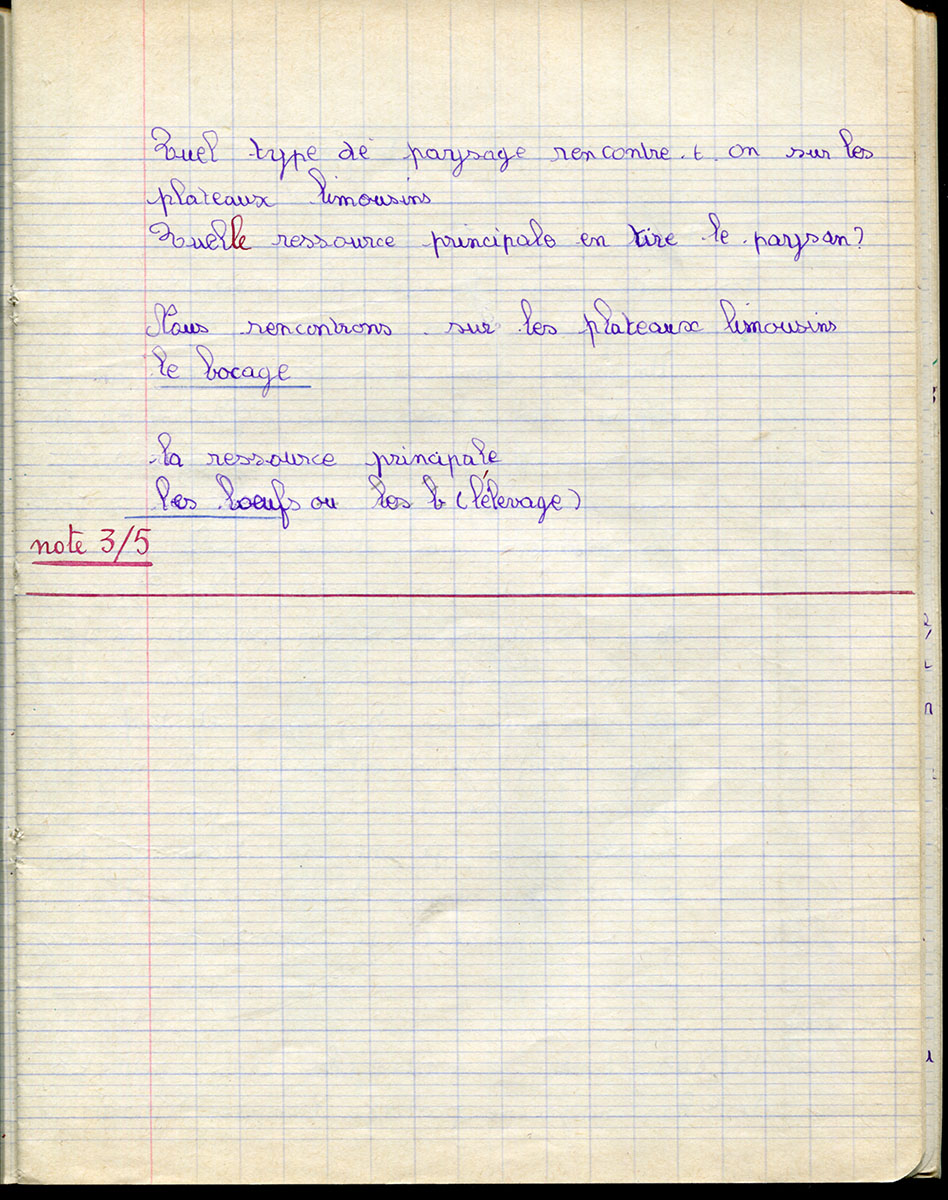 Quel type de paysage rencontre.t. on sur les
plateaux limousins
Quelle ressource principale en tire le paysan?
Nous rencontrons sur les plateaux limousins
le bocage
la ressource principale
les boeufs ou les b (l'élevage)
note 3/5